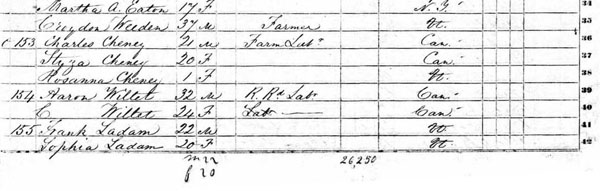 Martha A. Eaton 17 F N.Y. 34
Croydon Weeden 37 M Farmer Vt. 35
153 Charles Cheney 21 M Farm Labr Can. 36
Cheney 20 F Can. 37
Rosanna Cheney 1 F Vt. 38
154 Aaron Willet 32 M R. Rd. Labr Can. 39
C Willet 24 F Labr Can. 40
155 Frank Ladam 22 M Vt. 41
Sophia Ladam 20 F Vt. 42
m 22 26,250
f 20